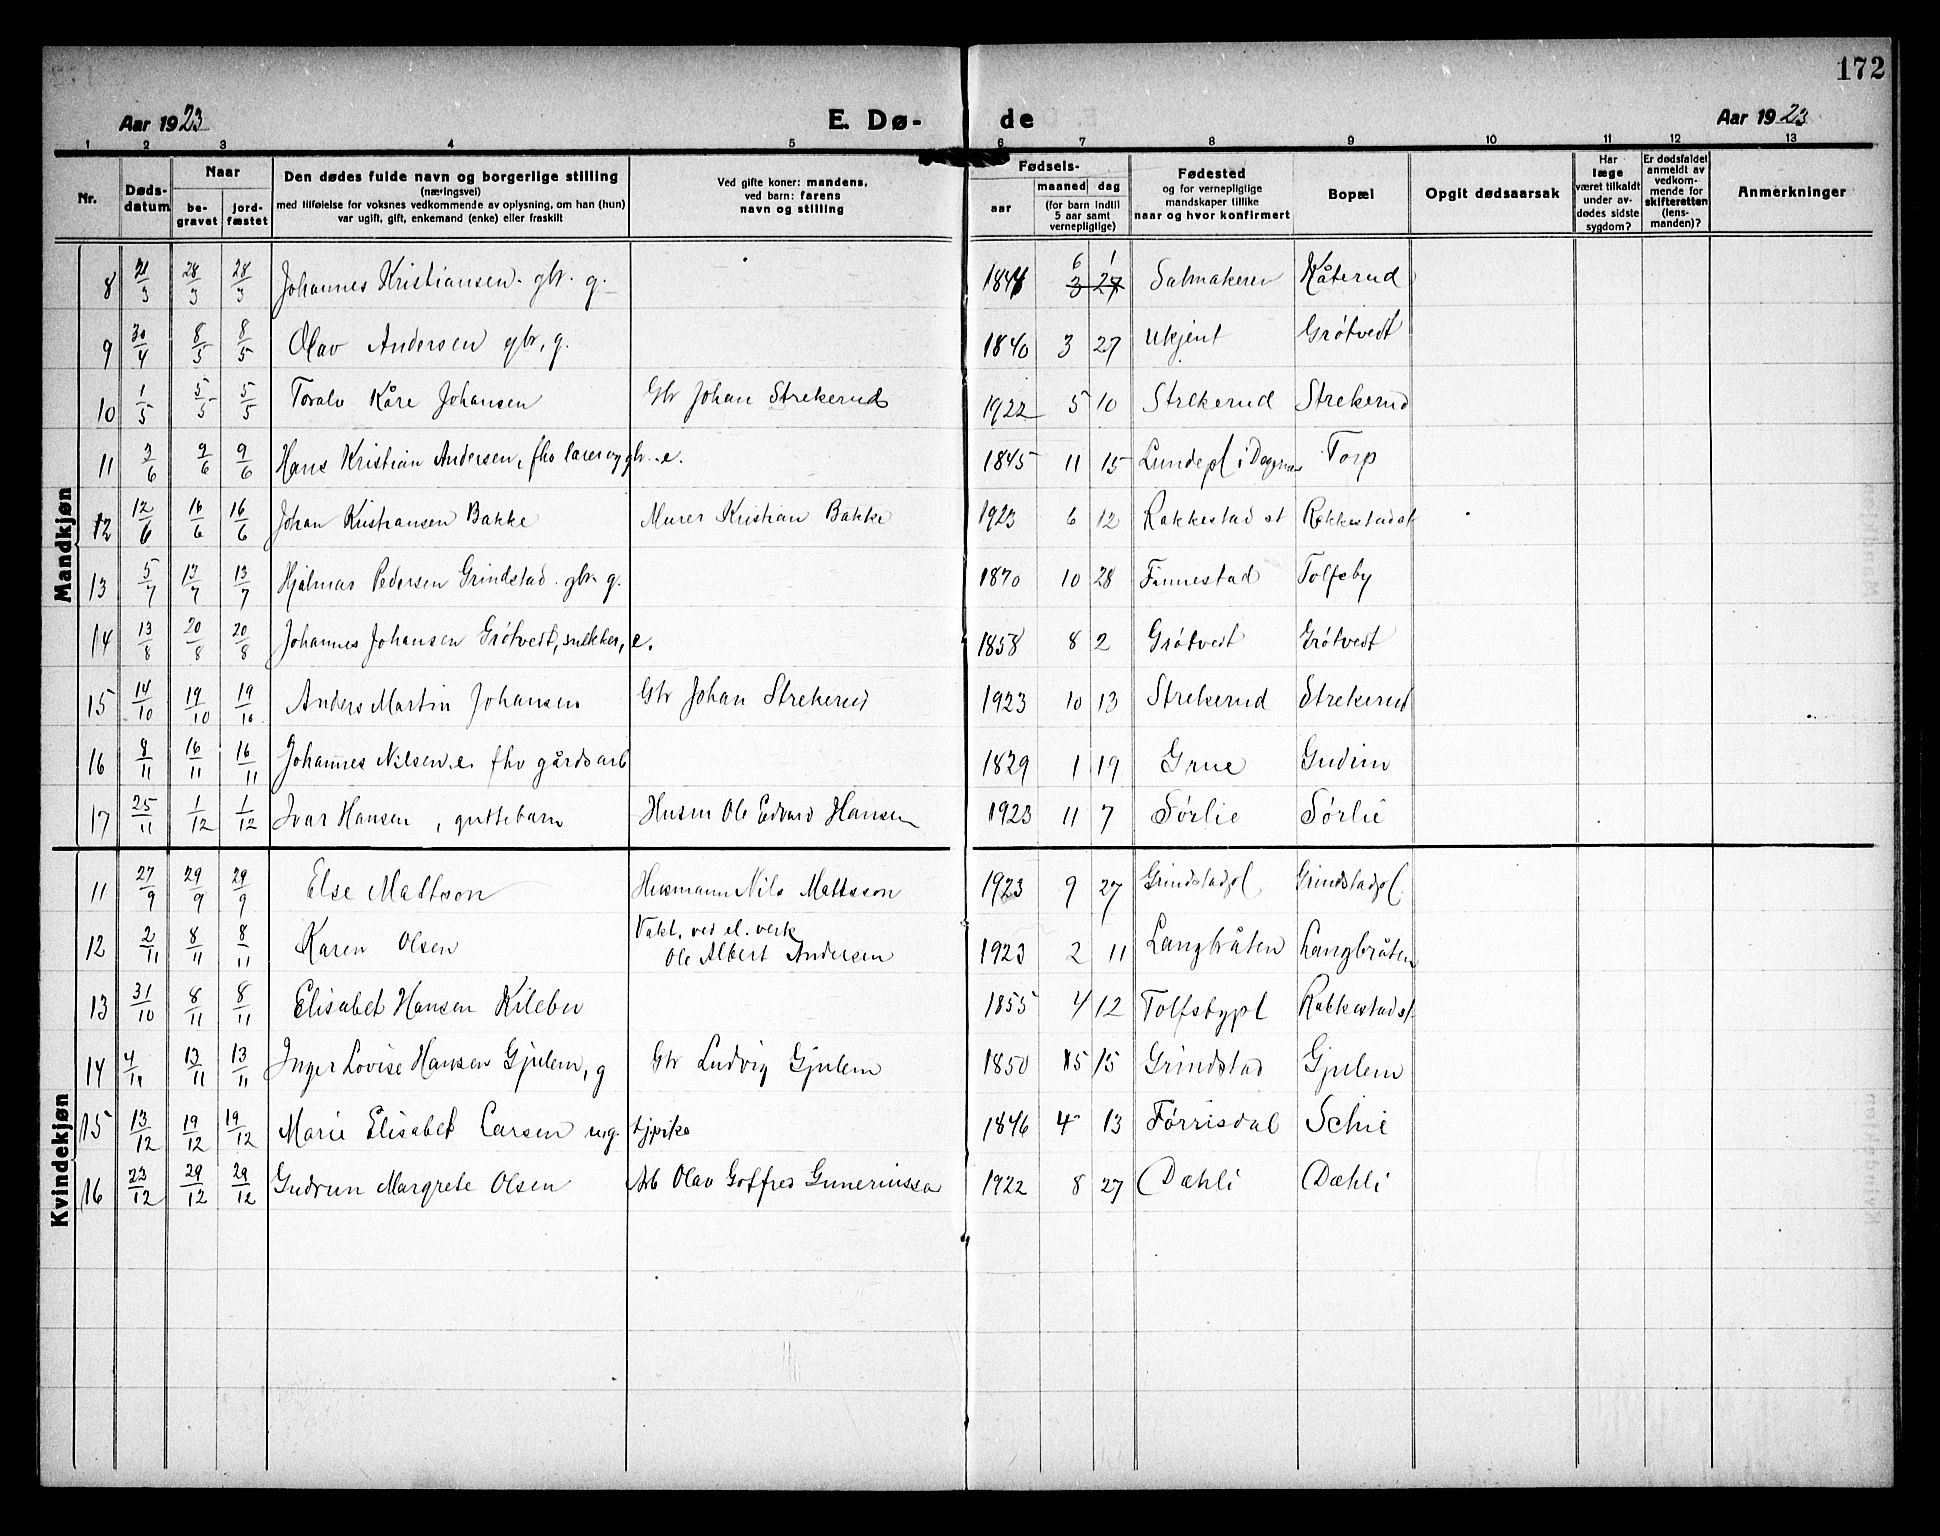 172
Aar 1923 E. Dø- de Aar 1923
1 2 3 4 5 6 7 8 9 10 11 12 13
Nr. Døds-datum Naar be-gravet jord-fæstet Den dødes fulde navn og borgerlige stilling (næringsvei) med tilføielse for voksnes vedkommende av oplysning, om han (hun) var ugift, gift, enkemand (enke) eller fraskilt Ved gifte koner: mandens, ved barn: farens navn og stilling Fødsels- aar maaned dag (for barn indtil 5 aar samt vernepligtige) Fødested og for vernepligtige mandskaper tillike naar og hvor konfirmert Bopæl Opgit dødsaarsak Har læge været tilkaldt under av-dødes sidste sygdom? Er dødsfaldet anmeldt av vedkom-mende for skifteretten (lens-manden)? Anmerkninger
Mandkjøn
8 21/3 28/3 28/3 Johannes Kristiansen. gbr. g. 1844 6 1 3 27 Salmakerer Kåterud
9 30/4 8/5 8/5 Olav Andersen gbr, g. 1840 3 27 Ukjent Grótvedt
10 1/5 5/5 5/5 Toralv Kåre Johansen Gbr Johan Strekerud 1922 5 10 Strekerud Strekerud
11 3/6 9/6 9/6 Hans Kristian Andersen, fhv lærer og gbr. e. 1845 11 15 Lundepl i Torp
12 12/6 16/6 16/6 Johan Kristiansen Bakke Murer Kristian Bakke 1923 6 12 Rakkestad st Rakkestad st
13 5/7 13/7 13/7 Hjalmar Pedersen Grindstad. gbr g. 1870 10 28 Finnestad Tolfsby
14 13/8 20/8 20/8 Johannes Johansen Grótvedt, snekker, e. 1858 8 2 Grótvedt Grótvedt
15 14/10 19/10 19/10 Anders Martin Johansen Gbr Johan Strekerud 1923 10 13 Strekerud Strekerud
16 8/11 16/11 16/11 Johannes Nilsen. e. fhv gårdsarb 1829 1 19 Grue Gudim
17 25/11 1/12 1/12 Ivar Hansen, guttebarn Husm Ole Edvard Hansen 1923 11 7 Sørlie Sørlie
Kvindekjøn
11 27/9 29/9 29/9 Else Mattson Husmann Nils Mattsson 1923 9 27 Grindstadpl Grindstadpl.
12 2/11 8/11 8/11 Karen Olsen Vakt. ved el. verk Ole Albert Andersen 1923 2 11 Langbråten Langbråten
13 31/10 8/11 8/11 Elisabet Hansen Kilebu 1855 4 12 Tolfsbypl Rakkestad st
14 4/11 13/11 13/11 Inger Lovise Hansen Gjulem, g Gbr Ludvig Gjulem 1850 5 15 Grindstad Gjulem
15 13/12 19/12 19/12 Marie Elisabet Larsen ug. 1846 4 13 Førrisdal Schie
16 23/12 29/12 29/12 Gudrun Margrete Olsen Arb Olav Gotfred 1922 8 27 Dæhli Dæhli